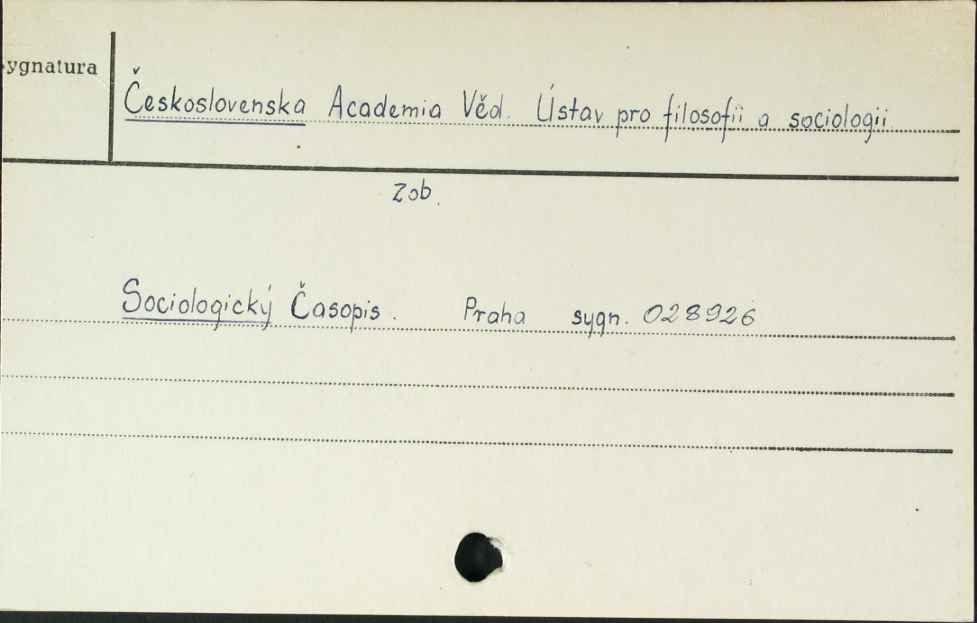 ygnatura
Československa Academia Věd. Ústav pro filosofii a sociologii
Zob.
Sociologický Časopis. Praha sygn. 028926